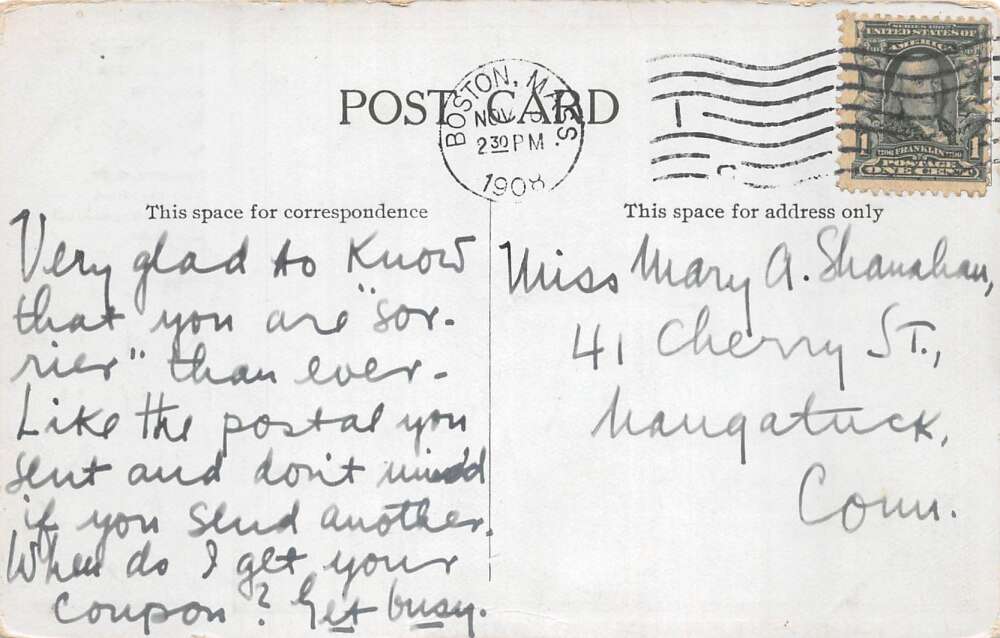 POST CARD
BOSTON, MASS.
NOV
2 30 PM
1908
SERIES 1902
UNITED STATES OF
AMERICA
1 FRANKLIN 1
POSTAGE
ONE CENT
This space for correspondence
Very glad to know
that you are "sor-
rier" than ever.
Like the postal you
sent and don't mind
if you send another.
When do I get your
coupon? Get busy.
This space for address only
Miss Mary A. Shanahan,
41 Cherry St.,
Naugatuck,
Conn.